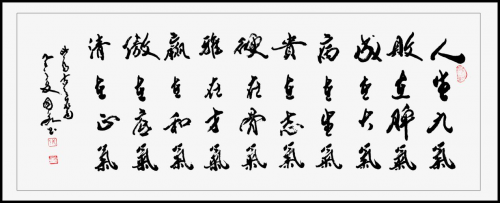 人生九氣
败在脾氣
成在大氣
病在生氣
貴在志氣
硬在骨氣
雅在才氣
贏在和氣
傲在底氣
清在正氣